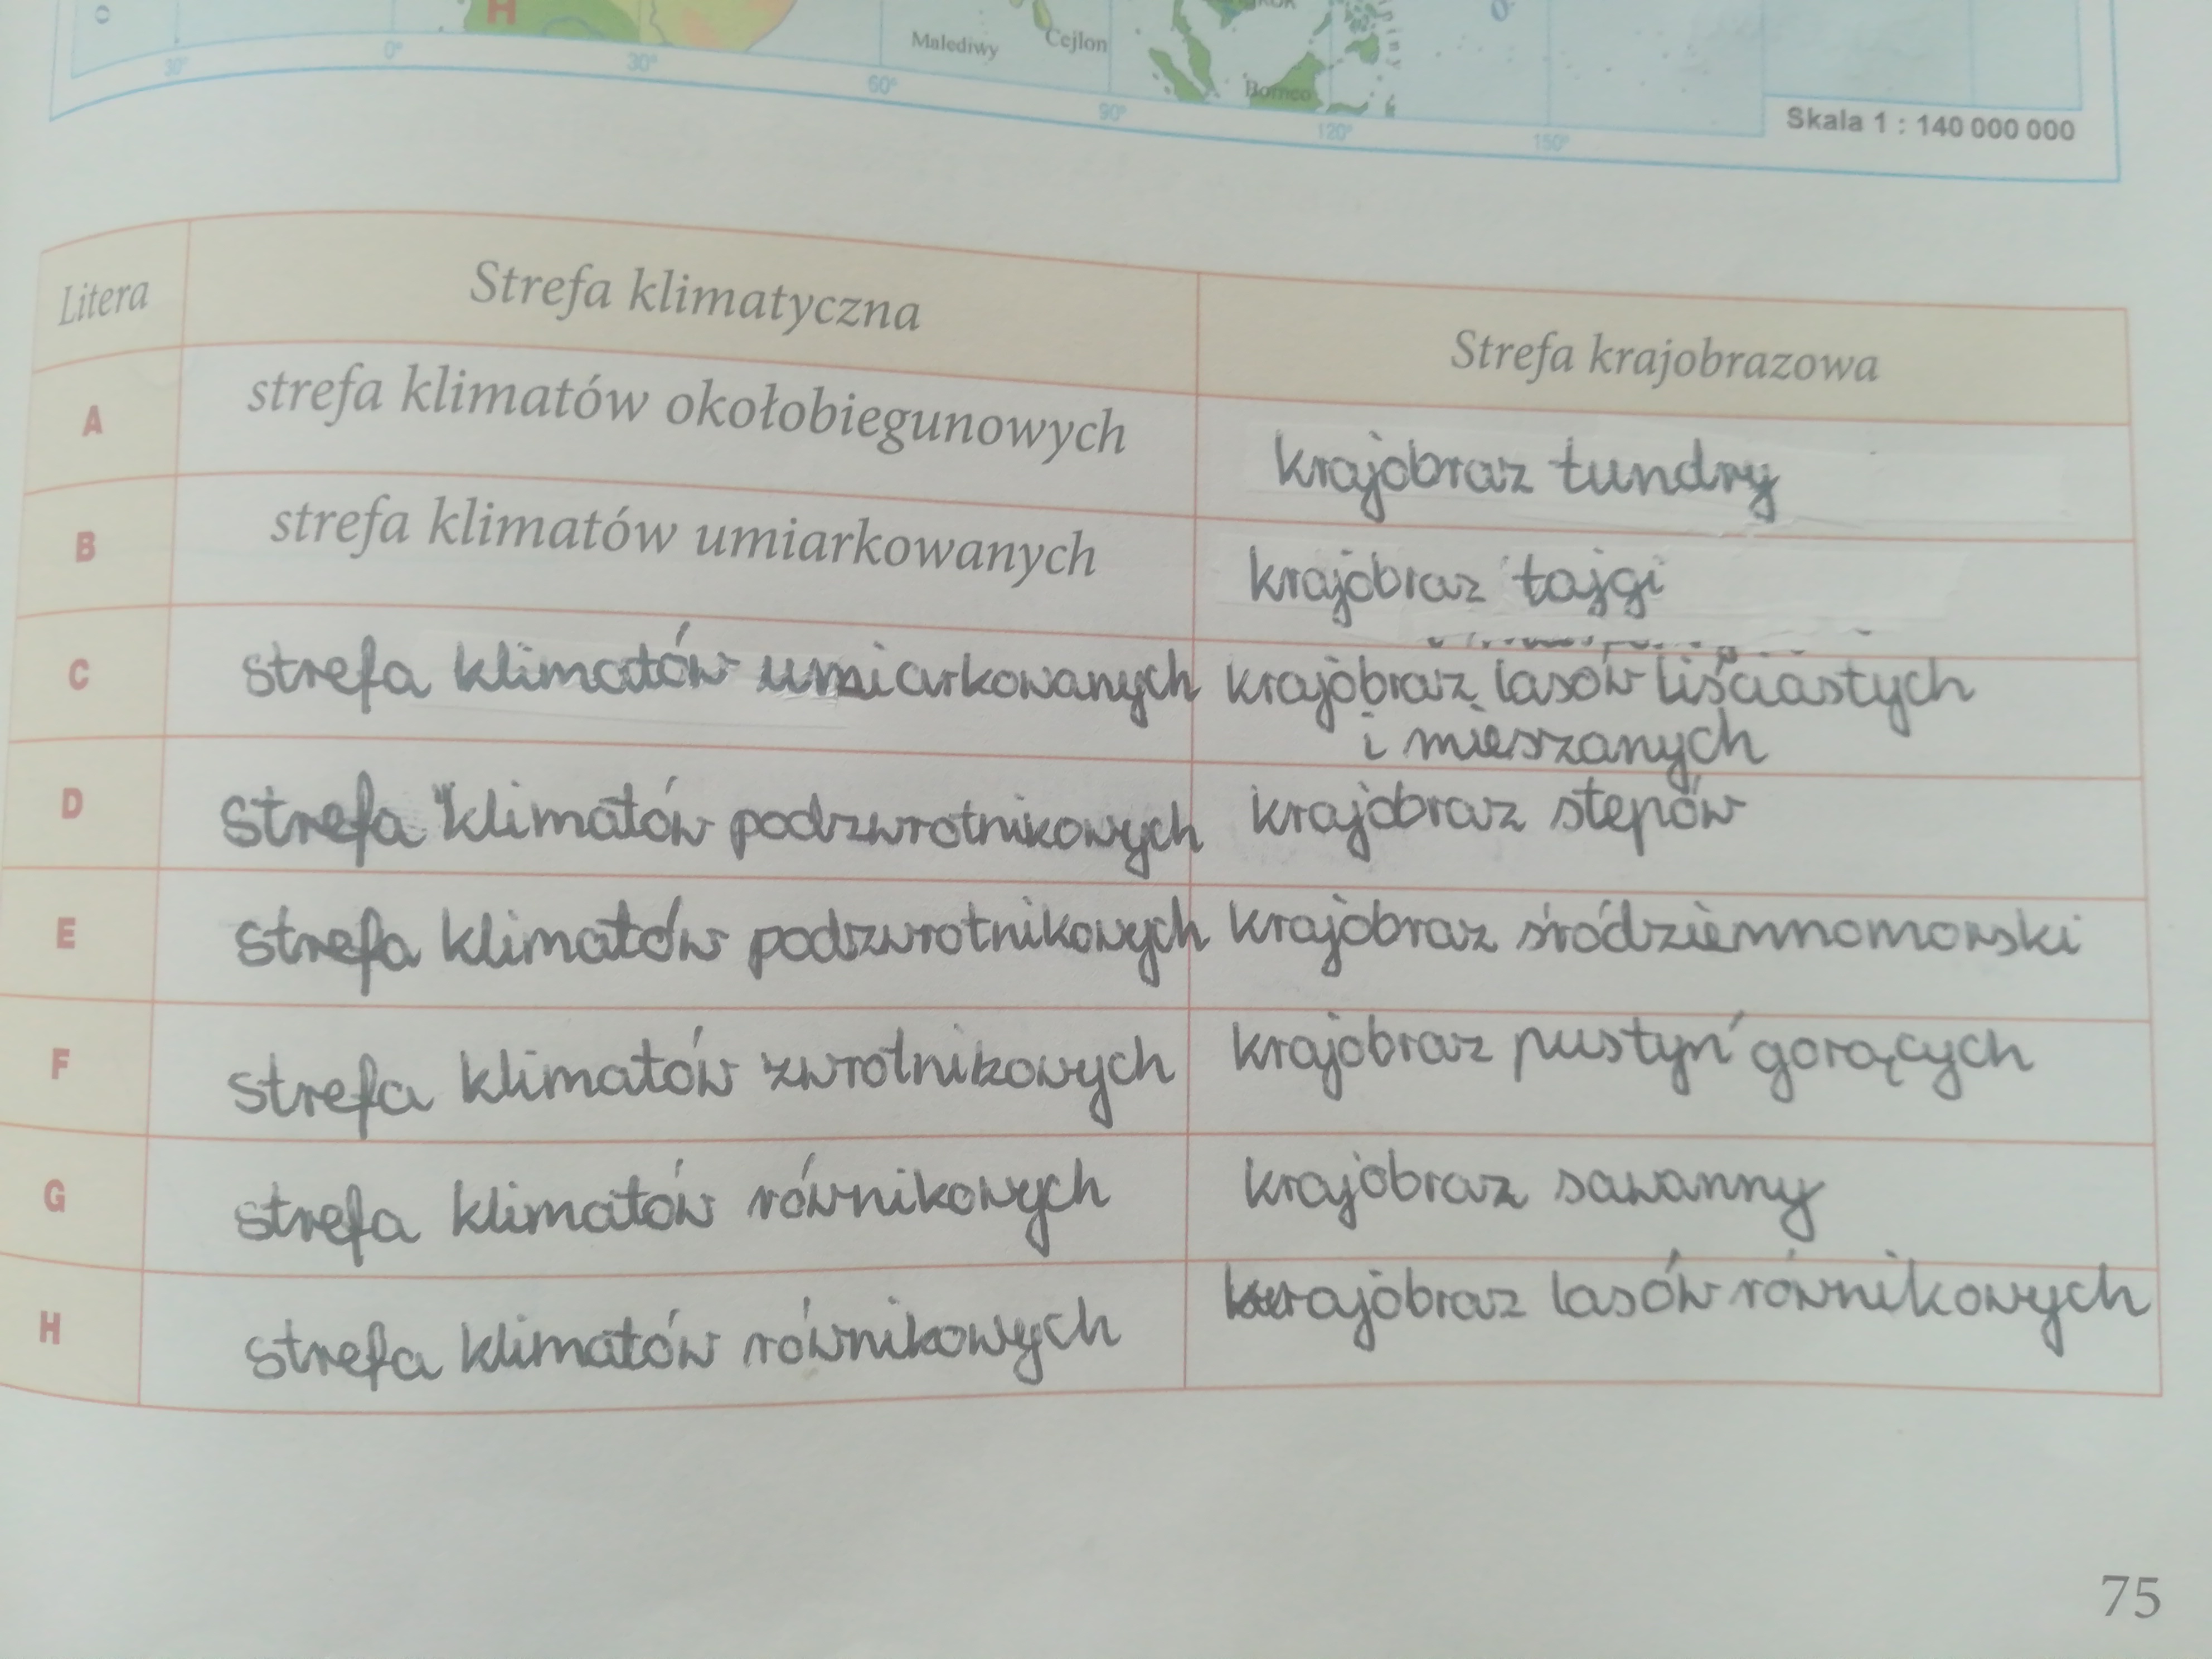 H
Malediwy
Cejlon
Borneo
30°
0°
30°
60°
90°
120°
150°
Skala 1 : 140 000 000
Litera
Strefa klimatyczna
Strefa krajobrazowa
A
strefa klimatów okołobiegunowych
krajobraz tundry
B
strefa klimatów umiarkowanych
krajobraz tajgi
C
strefa klimatów umiarkowanych
krajobraz lasów liściastych
i mieszanych
D
strefa klimatów podzwrotnikowych
krajobraz stepów
E
strefa klimatów podzwrotnikowych
krajobraz śródziemnomorski
F
strefa klimatów zwrotnikowych
krajobraz pustyń gorących
G
strefa klimatów równikowych
krajobraz sawanny
H
strefa klimatów równikowych
krajobraz lasów równikowych
75